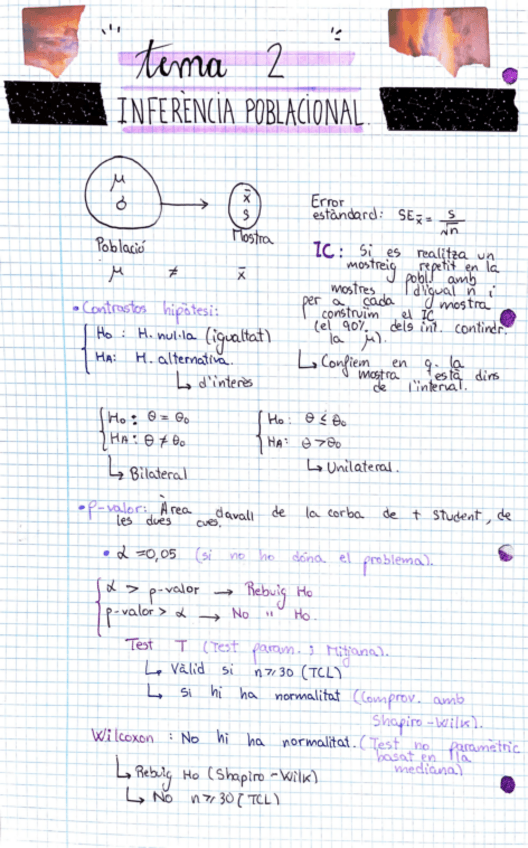 tema 2
INFERÈNCIA POBLACIONAL.
μ
σ
Població
x̄
s
Mostra
μ ≠ x̄
Error
estàndard: SE x̄ = s/√n
IC: Si es realitza un
mostreig repetit en la
pobl. amb
mostres d'igual n i
per a cada mostra
construïm el IC
(el 90% dels int. contindr.
la μ).
↳ Confiem en q. la
mostra està dins
de l'interval.
• Contrastos hipòtesi:
H0: H. nul·la (igualtat)
HA: H. alternativa.
↳ d'interès
H0: θ = θ0
HA: θ ≠ θ0
↳ Bilateral
H0: θ ≤ θ0
HA: θ > θ0
↳ Unilateral.
• p-valor: Àrea davall de la corba de t Student, de
les dues cues.
• α = 0,05 (si no ho dóna el problema).
α > p-valor → Rebuig H0
p-valor > α → No " H0.
Test T (Test param. ; Mitjana).
↳ Vàlid si n ≥ 30 (TCL)
↳ si hi ha normalitat (Comprov. amb
Shapiro-Wilk).
Wilcoxon: No hi ha normalitat. (Test no paramètric
basat en la
mediana)
↳ Rebuig H0 (Shapiro-Wilk)
↳ No n ≥ 30 (TCL)